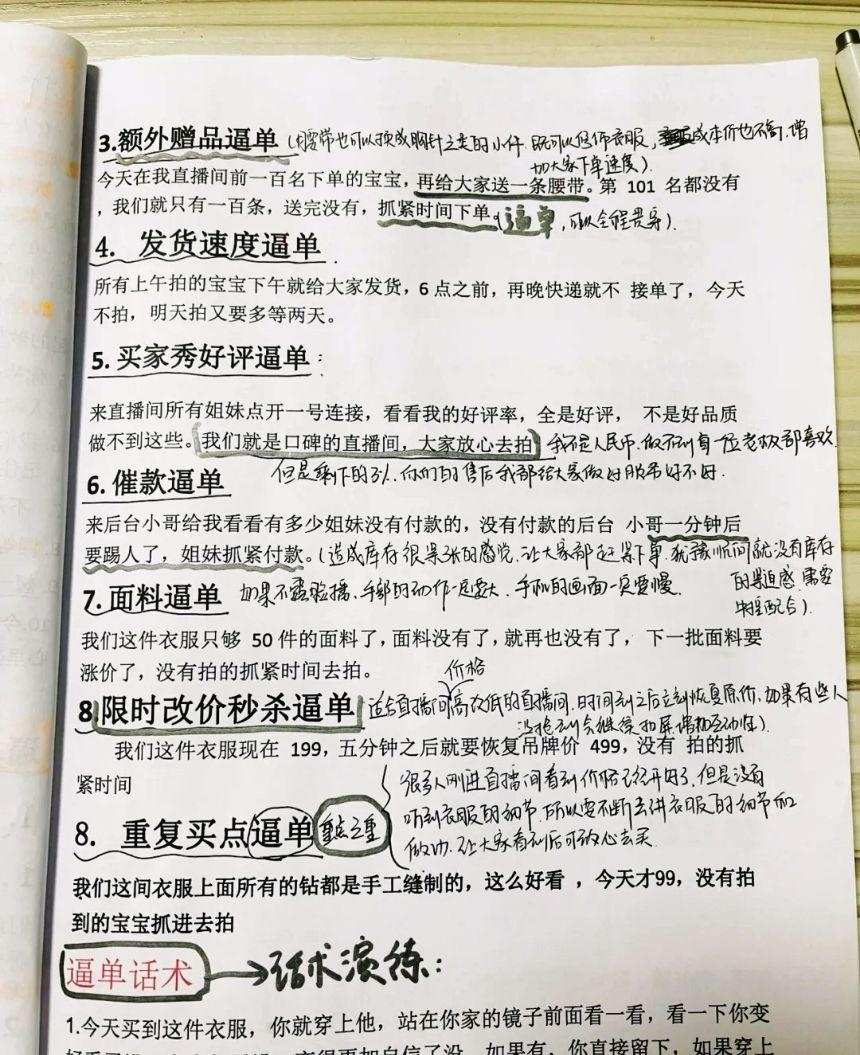 3.额外赠品逼单（腰带也可以换成胸针之类的小件 既可以装饰衣服，成本价也不高，增
加大家下单速度）.
今天在我直播间前一百名下单的宝宝，再给大家送一条腰带。第 101 名都没有
，我们就只有一百条，送完没有，抓紧时间下单（逼单，可以全程贯穿）.
4. 发货速度逼单.
所有上午拍的宝宝下午就给大家发货，6 点之前，再晚快递就不 接单了，今天
不拍，明天拍又要多等两天。
5. 买家秀好评逼单：
来直播间所有姐妹点开一号连接，看看我的好评率，全是好评， 不是好品质
做不到这些。我们就是口碑的直播间，大家放心去拍 我不是人民币.做不到每一位老板都喜欢
但是剩下的3%.你们的售后我都给大家做好服务好不好.
6. 催款逼单
来后台小哥给我看看有多少姐妹没有付款的，没有付款的后台 小哥一分钟后
要踢人了，姐妹抓紧付款。（造成库存很紧张的感觉.让大家都赶紧下单.犹豫瞬间就没有库存
的紧迫感 需要
配合）.
7. 面料逼单 如果不露脸播、手部的动作一定要大、手机的画面一定要慢.
我们这件衣服只够 50 件的面料了，面料没有了，就再也没有了， 下一批面料要
涨价了，没有拍的抓紧时间去拍。
价格
8.限时改价秒杀逼单 适合直播间高改低的直播间.时间到之后立刻恢复原价.如果有些人
没抢到会继续扣屏增加互动性）.
我们这件衣服现在 199，五分钟之后就要恢复吊牌价 499，没有 拍的抓
紧时间
8. 重复买点逼单 重点之重
很多人刚进直播间看到价格已经开好了.但是没有
听到衣服的细节.所以要不断去讲衣服的细节和
做功.让大家看到后可放心去买
我们这间衣服上面所有的钻都是手工缝制的，这么好看 ，今天才99，没有拍
到的宝宝抓进去拍
逼单话术 →话术演练：
1.今天买到这件衣服，你就穿上他，站在你家的镜子前面看一看，看一下你变
变得更加自信了没，如果有，你直接留下，如果穿上